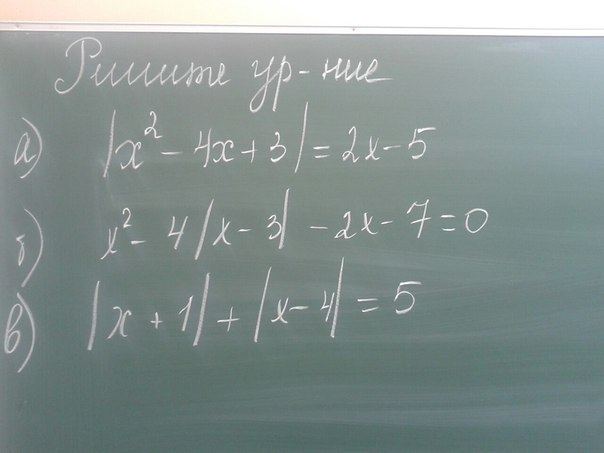 Решите ур-ние
а) |x² - 4x + 3| = 2x - 5
б) x² - 4|x - 3| - 2x - 7 = 0
в) |x + 1| + |x - 4| = 5